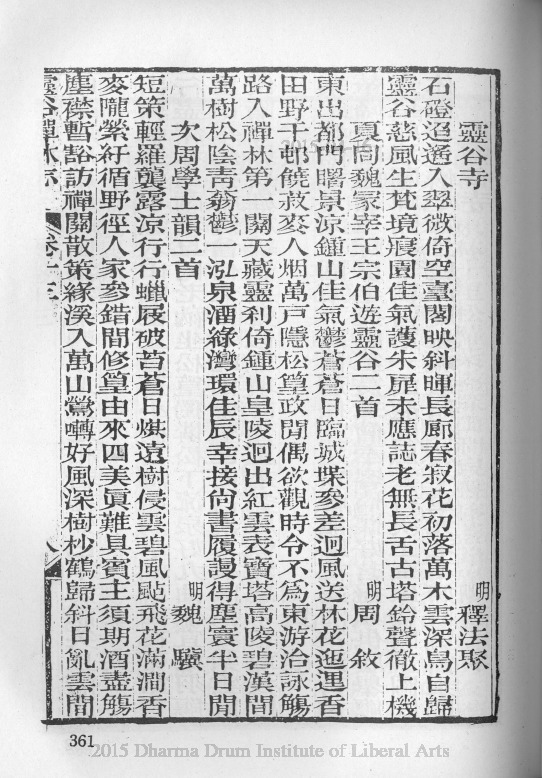 靈谷寺
明 釋法聚
石磴迢遙入翠微倚空臺閣映斜暉長廊春寂花初落萬木雲深鳥自歸
靈谷慈風生梵境寢園佳氣護朱扉未應誌老無長舌古塔鈴聲徹上機
夏同魏冢宰王宗伯遊靈谷二首
明 周 敘
東出都門曙景涼鍾山佳氣鬱蒼蒼日臨城堞參差迥風送林花迤邐香
田野干邨饒菽麥人烟萬戶隱松篁政閒偶欲觀時令不為東游治詠觴
路入禪林第一關天藏靈刹倚鍾山皇陵迥出紅雲表寶塔高陵碧漢間
萬樹松陰靑蓊鬱一泓泉溜綠灣環佳辰幸接尙書履謾得塵寰半日閒
次周學士韻二首
明 魏 驥
短策輕羅襲露涼行行蠟屐破苔蒼日烘遠樹侵雲碧風颭飛花滿澗香
麥隴縈紆循野徑人家參錯間修篁由來四美眞難具賓主須期酒盡觴
塵襟暫豁訪禪關散策緣溪入萬山鶯囀好風深樹杪鶴歸斜日亂雲間
靈谷禪林志 卷十三
361
2015 Dharma Drum Institute of Liberal Arts